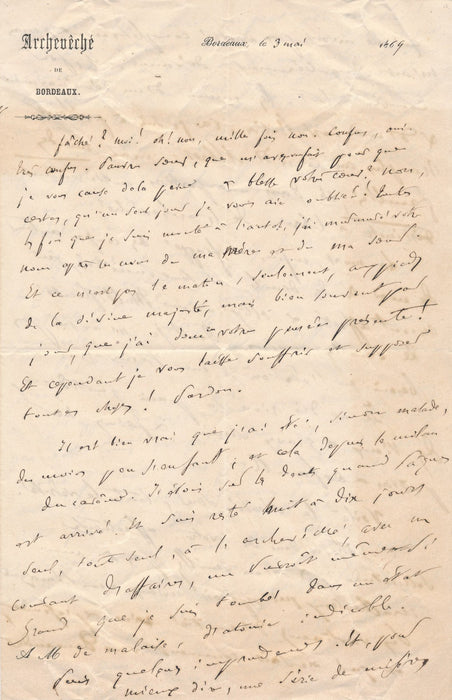 Archevêché
DE
BORDEAUX.
Bordeaux, le 3 mai 1869
fâché? moi! oh! non, mille fois non. Confus, oui
très confus. Pauvre sœur, que m'a fait pour que
je vous cause de la peine blesse votre cœur? Non,
certes, qu'un seul jour je vous aie oubliée! Toutes
les fois que je suis monté à l'autel, j'ai murmuré votre
nom après le nom de ma mère et de ma sœur.
Et ce n'est pas le matin, seulement, aux pieds
de la divine majesté, mais bien souvent par
jour, que j'ai votre pensée présente!
Et cependant je vous laisse souffrir et supposer
toutes choses! Pardon.
Il est bien vrai que j'ai été, sinon malade,
du moins peu s'en faut; et cela depuis le milieu
du carême. J'étais sur le dos quand Pâques
est arrivé. Et suis resté huit à dix jours
seul, tout seul, à l'archevêché avec un
courant d'affaires, un surcroît même. Si
grand que je suis tombé dans un état
de malaise, d'atonie indicible.
Puis quelques imprudences. Et, pour
mieux dire, une série de misères